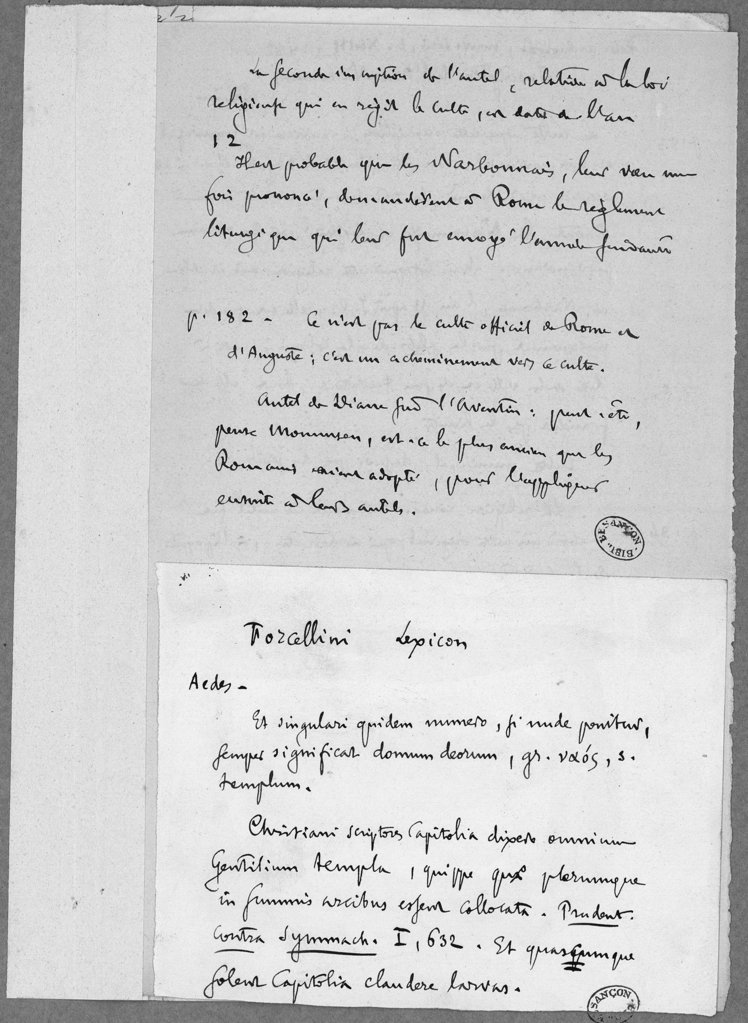 La seconde inscription de l'autel, relative à la loi
religieuse qui en régit le culte, est datée de l'an
12
Il est probable que les Narbonnais, leur vœu une
fois prononcé, demandèrent à Rome le règlement
liturgique qui leur fut envoyé l'année suivante
p. 182 - Ce n'est pas le culte officiel de Rome et
d'Auguste ; c'est un acheminement vers ce culte.
Autel de Diane sur l'Aventin : peut-être,
pense Mommsen, est-ce le plus ancien que les
Romains aient adopté, pour l'appliquer
ensuite à leurs autels.
BIBL. DE BESANÇON
Forcellini Lexicon
Aedes -
Et singulari quidem numero, si nude ponitur,
semper significat domum deorum, gr. ναός, s.
templum.
Christiani scriptores Capitolia dixere omnium
Gentilium templa, quippe quæ plerumque
in summis arcibus essent collocata. Prudent.
contra Symmach. I, 632. Et quascumque
solent Capitolia claudere larvas.
BESANÇON